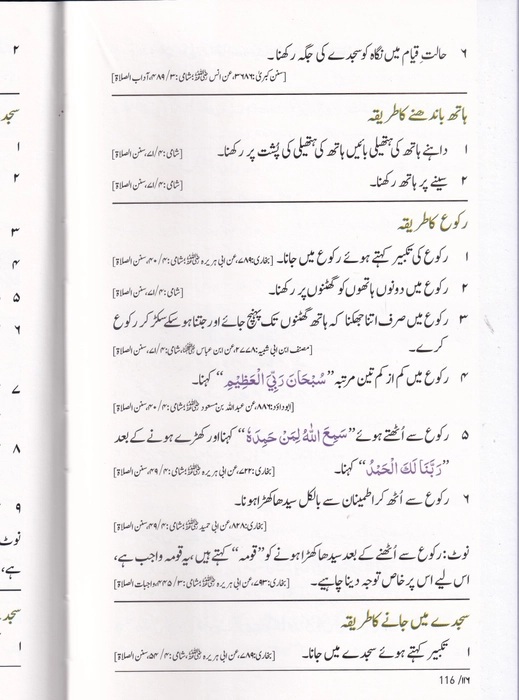 ۶ حالتِ قیام میں نگاہ کو سجدے کی جگہ رکھنا۔
[سنن کبریٰ:۳۶۸۶، عن انس ؓ؛ شامی:۳/۴۸۹، آداب الصلاۃ]
ہاتھ باندھنے کا طریقہ
۱ داہنے ہاتھ کی ہتھیلی بائیں ہاتھ کی ہتھیلی کی پشت پر رکھنا۔ [شامی:۴/۷۱، سنن الصلاۃ]
۲ سینے پر ہاتھ رکھنا۔ [شامی:۴/۷۱، سنن الصلاۃ]
رکوع کا طریقہ
۱ رکوع کی تکبیر کہتے ہوئے رکوع میں جانا۔ [بخاری:۷۸۹، عن ابی ہریرہ ؓ؛ شامی:۴/۴۰، سنن الصلاۃ]
۲ رکوع میں دونوں ہاتھوں کو گھٹنوں پر رکھنا۔ [شامی:۴/۷۱، سنن الصلاۃ]
۳ رکوع میں صرف اتنا جھکنا کہ ہاتھ گھٹنوں تک پہنچ جائے اور جتنا ہو سکے سکڑ کر رکوع
کرے۔ [مصنف ابن ابی شیبہ:۲۷۷۸، عن ابن عباس ؓ، شامی:۴/۷۱، سنن الصلاۃ]
۴ رکوع میں کم از کم تین مرتبہ ”سُبْحَانَ رَبِّيَ الْعَظِيْمِ“ کہنا۔
[ابوداؤد:۸۸۶، عن عبداللہ بن مسعود ؓ؛ شامی:۴/۴۰، سنن الصلاۃ]
۵ رکوع سے اُٹھتے ہوئے ”سَمِعَ اللّٰهُ لِمَنْ حَمِدَهٗ“ کہنا اور کھڑے ہونے کے بعد
”رَبَّنَا لَكَ الْحَمْدُ“ کہنا۔ [بخاری:۷۲۲، عن ابی ہریرہ ؓ؛ شامی:۴/۴۹، سنن الصلاۃ]
۶ رکوع سے اُٹھ کر اطمینان سے بالکل سیدھا کھڑا ہونا۔
[بخاری:۸۲۸، عن ابی حمید ؓ؛ شامی:۴/۴۹، سنن الصلاۃ]
نوٹ: رکوع سے اُٹھنے کے بعد سیدھا کھڑا ہونے کو ”قومہ“ کہتے ہیں، یہ قومہ واجب ہے،
اس لیے اس پر خاص توجہ دینا چاہیے۔ [بخاری:۷۹۳، عن ابی ہریرہ ؓ؛ شامی:۳/۴۴۵، واجبات الصلاۃ]
سجدے میں جانے کا طریقہ
۱ تکبیر کہتے ہوئے سجدے میں جانا۔ [بخاری:۷۸۹، عن ابی ہریرہ ؓ، شامی:۴/۵۴، سنن الصلاۃ]
116 /۱۱۶
۲
۱
۲
۳
۴
۵
۶
۷
۸
۹
نوٹ
ہے،
۱